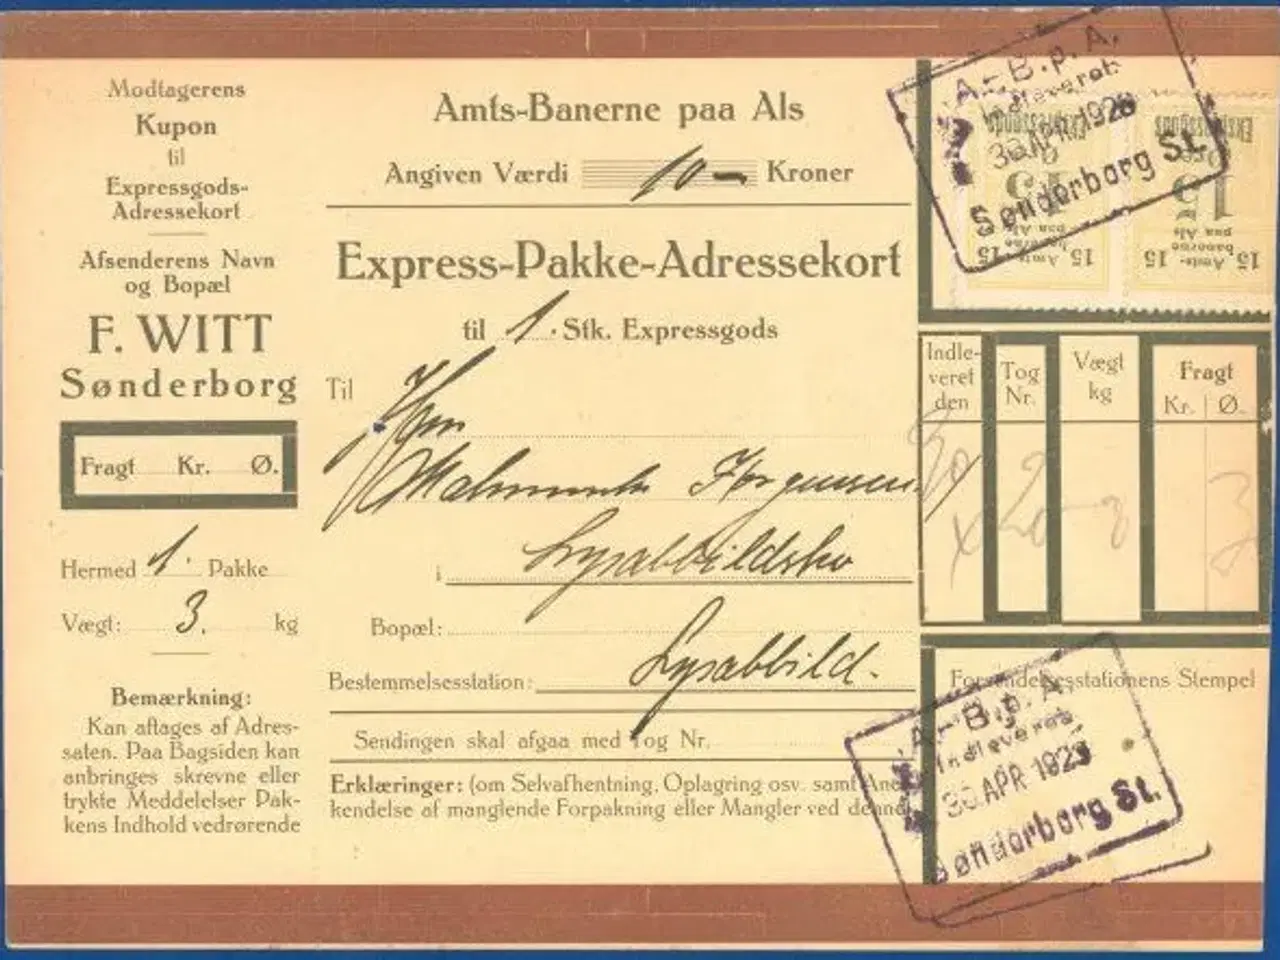 Modtagerens
Kupon
til
Expressgods-
Adressekort
Afsenderens Navn
og Bopæl
F. WITT
Sønderborg
Fragt Kr. Ø.
Hermed 1. Pakke
Vægt: 3. kg
Bemærkning:
Kan aftages af Adres-
saten. Paa Bagsiden kan
anbringes skrevne eller
trykte Meddelelser Pak-
kens Indhold vedrørende
Amts-Banerne paa Als
Angiven Værdi 10 Kroner
Express-Pakke-Adressekort
til 1. Stk. Expressgods
Til
i
Bopæl:
Bestemmelsesstation: Lysabbild.
Sendingen skal afgaa med Tog Nr.
Erklæringer: (om Selvafhentning, Oplagring osv. samt
kendelse af manglende Forpakning eller Mangler ved
A.-B.p.A.
Indleveret
30 APR 1926
Sønderborg St.
Ekspressgods
15
Øre
Amts-
banerne
paa Als
15 15
Ekspressgods
15
Øre
Amts-
banerne
paa Als
15 15
Indle-
veret
den
Tog
Nr.
Vægt
kg
Fragt
Kr. Ø.
Forsendelsesstationens Stempel
A.-B.p.A.
Indleveret
30 APR 1926
Sønderborg St.